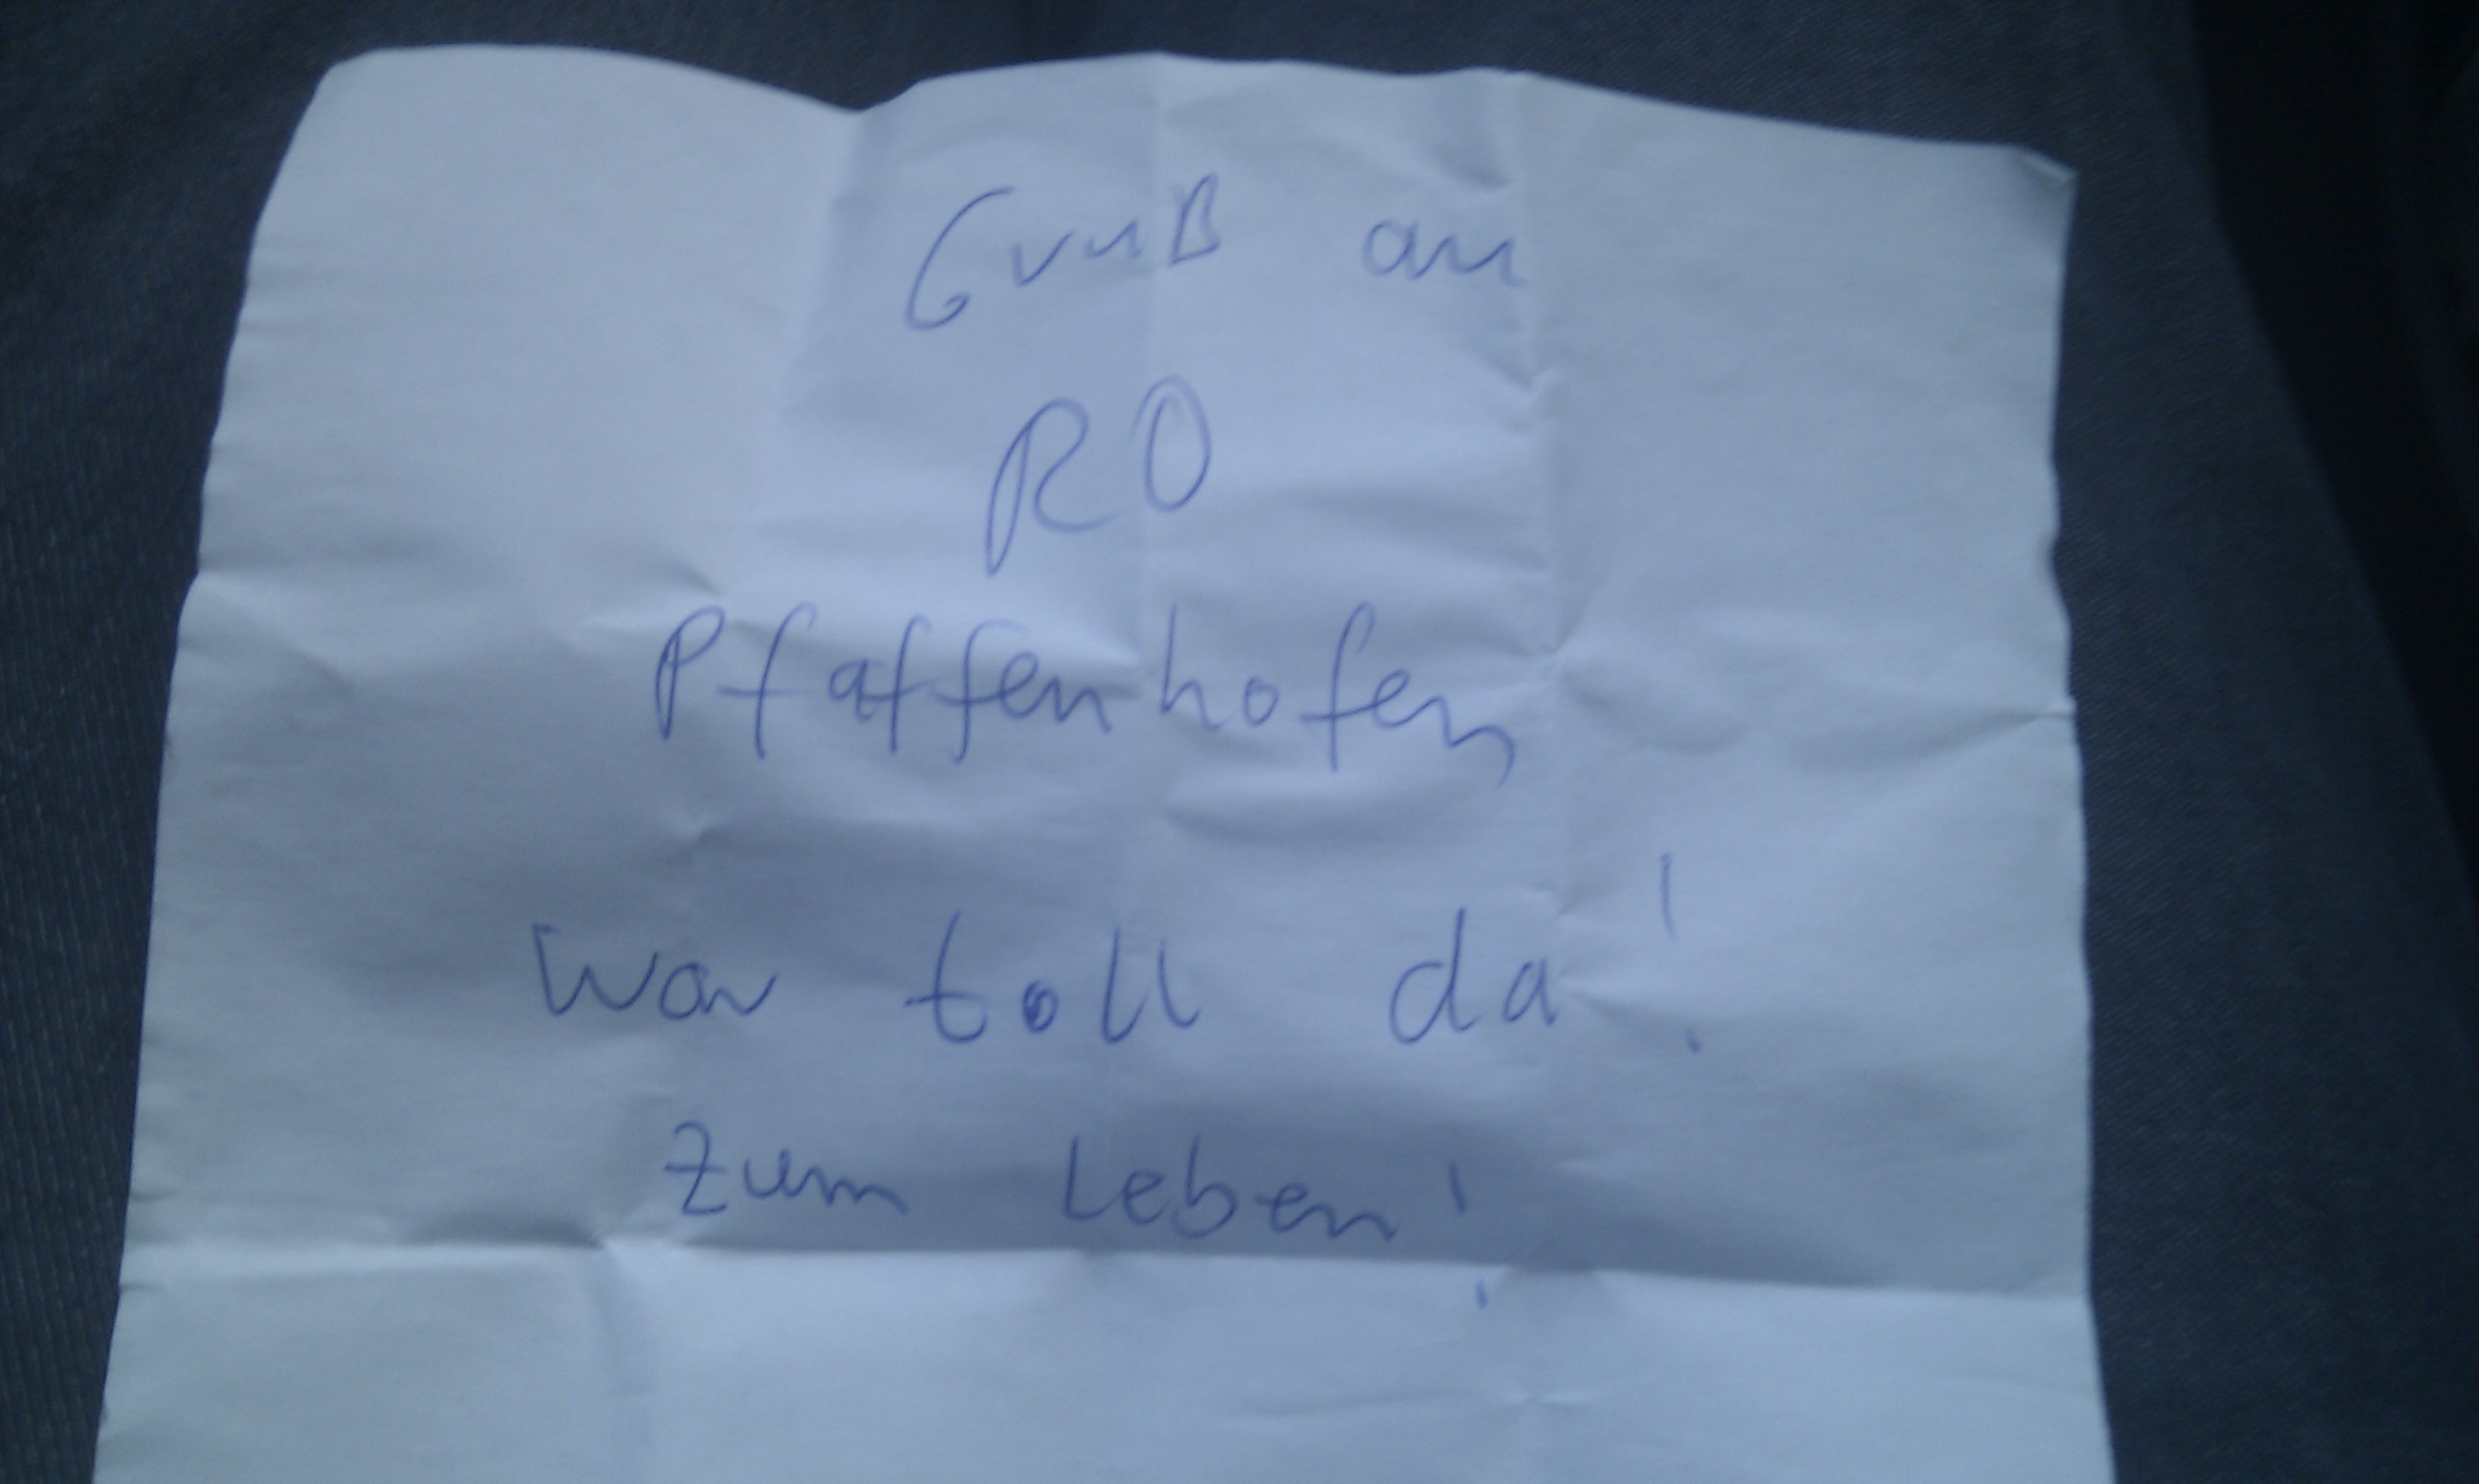 Gruß an
RO
Pfaffenhofen
War toll da!
Zum Leben!